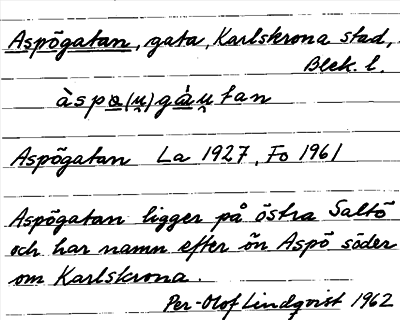 Aspögatan, gata, Karlskrona stad,
Blek. l.
àspo(u̯)gáu̯tan
Aspögatan La 1927, Fo 1961
Aspögatan ligger på östra Saltö
och har namn efter ön Aspö söder
om Karlskrona.
Per-Olof Lindqvist 1962